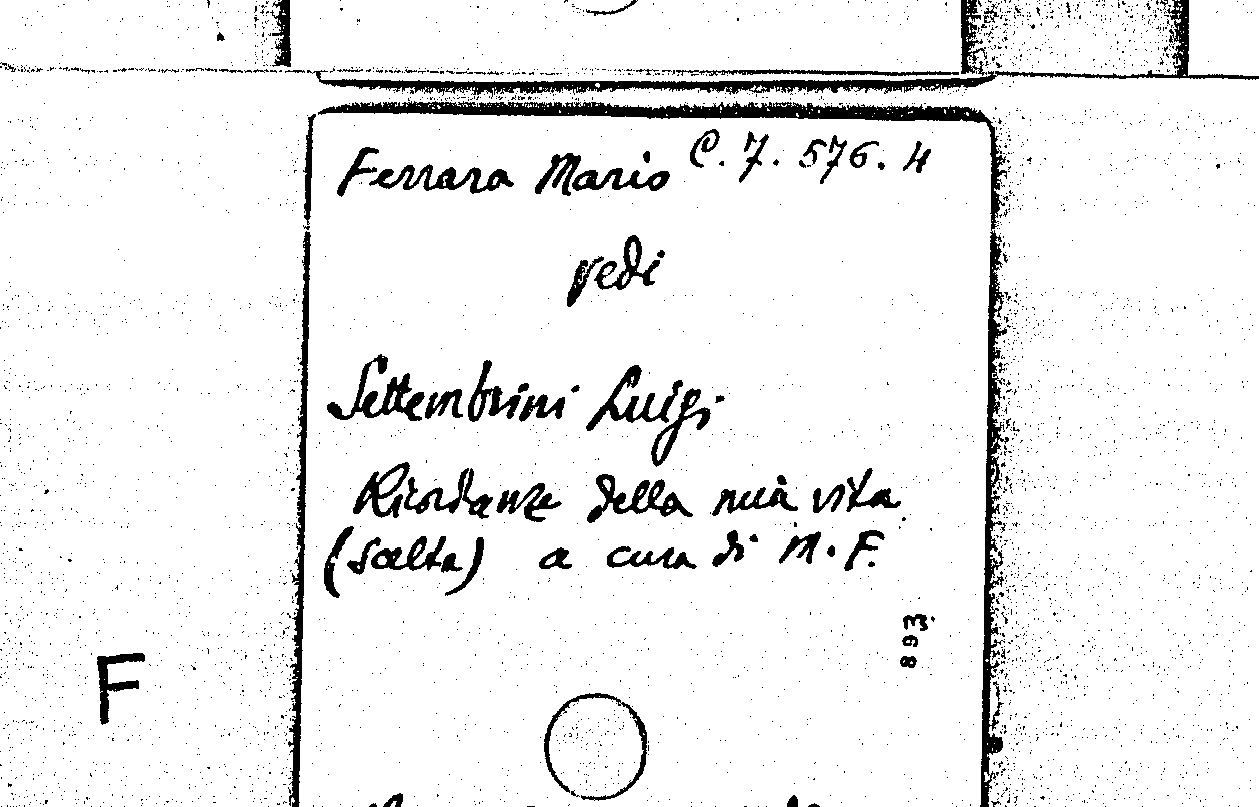 Ferrara Mario C. 7. 576. 4
vedi
Settembrini Luigi
Ricordanze della mia vita
(Scelta) a cura di M. F.
893
F